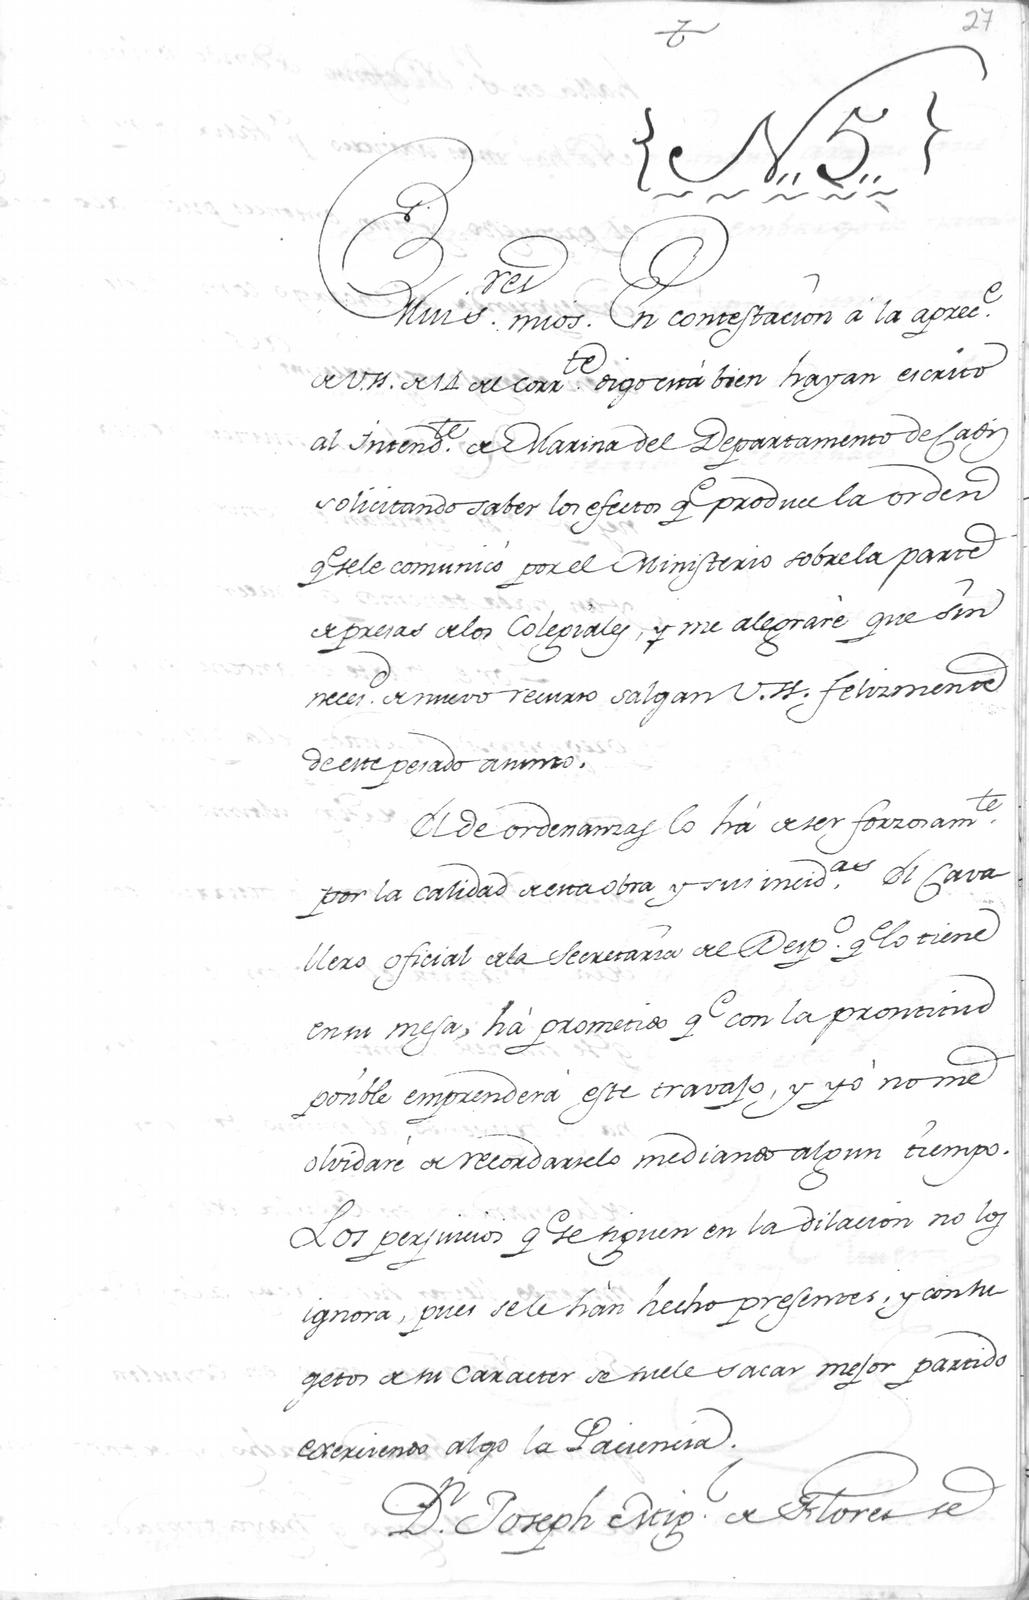 27
{N.. 5..}
Muis. s.res mios. En contestacion á la aprec.e
de V.ss. de 14 del corr.te digo está bien hayan escrito
al Intend.te de Marina del Departamento de Cadiz
solicitando saber los efectos q.e produce la orden
q.e se le comunicó por el Ministerio sobre la parte
de presas de los Colegiales, y me alegraré que sin
neces.d de nuevo recurso salgan V.ss. felizmente
de este pesado asunto.
El de ordenanzas lo há de ser forzosam.te
por la calidad de esta obra y sus incid.as El Cava
llero oficial de la Secretaría del Desp.o q.e lo tiene
en su mesa, há prometido q.e con la prontitud
posible emprenderá este travajo, y yó no me
olvidaré de recordarselo mediando algun tiempo.
Los perjuicios q.e se siguen en la dilacion no los
ignora, pues se le hán hecho presentes, y con su
getos de su carácter se suele sacar mejor partido
exerciendo algo la Paciencia.
D.n Joseph Mig.l de Flores se